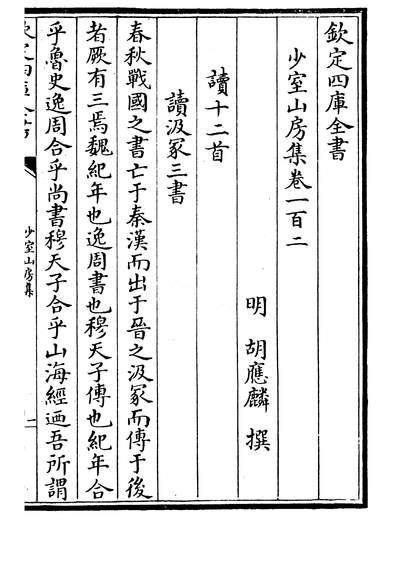 欽定四庫全書
少室山房集卷一百二
明 胡應麟 撰
讀十二首
讀汲冢三書
春秋戰國之書亡于秦漢而出于晉之汲冢而傳于後
者厥有三焉魏紀年也逸周書也穆天子傳也紀年合
乎魯史逸周合乎尚書穆天子合乎山海經迺吾所謂
少室山房集